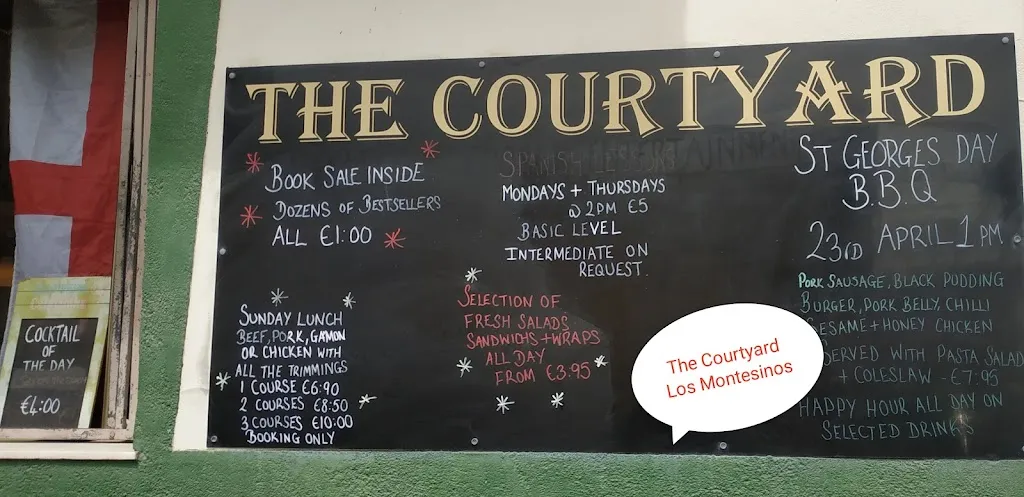 THE COURTYARD
BOOK SALE INSIDE
DOZENS OF BESTSELLERS
ALL €1:00
SUNDAY LUNCH
BEEF, PORK, GAMON
OR CHICKEN WITH
ALL THE TRIMMINGS
1 COURSE €6:90
2 COURSES €8:50
3 COURSES €10:00
BOOKING ONLY
SPANISH LESSONS
MONDAYS + THURSDAYS
@ 2PM €5
BASIC LEVEL
INTERMEDIATE ON
REQUEST.
SELECTION OF
FRESH SALADS
SANDWICHS + WRAPS
ALL DAY
FROM €3.95
ST GEORGES DAY
B.B.Q
23RD APRIL 1PM
PORK SAUSAGE, BLACK PUDDING
BURGER, PORK BELLY, CHILLI
SESAME + HONEY CHICKEN
SERVED WITH PASTA SALAD
+ COLESLAW - €7:95
HAPPY HOUR ALL DAY ON
SELECTED DRINKS
The Courtyard
Los Montesinos
COCKTAIL
OF
THE DAY
€4:00